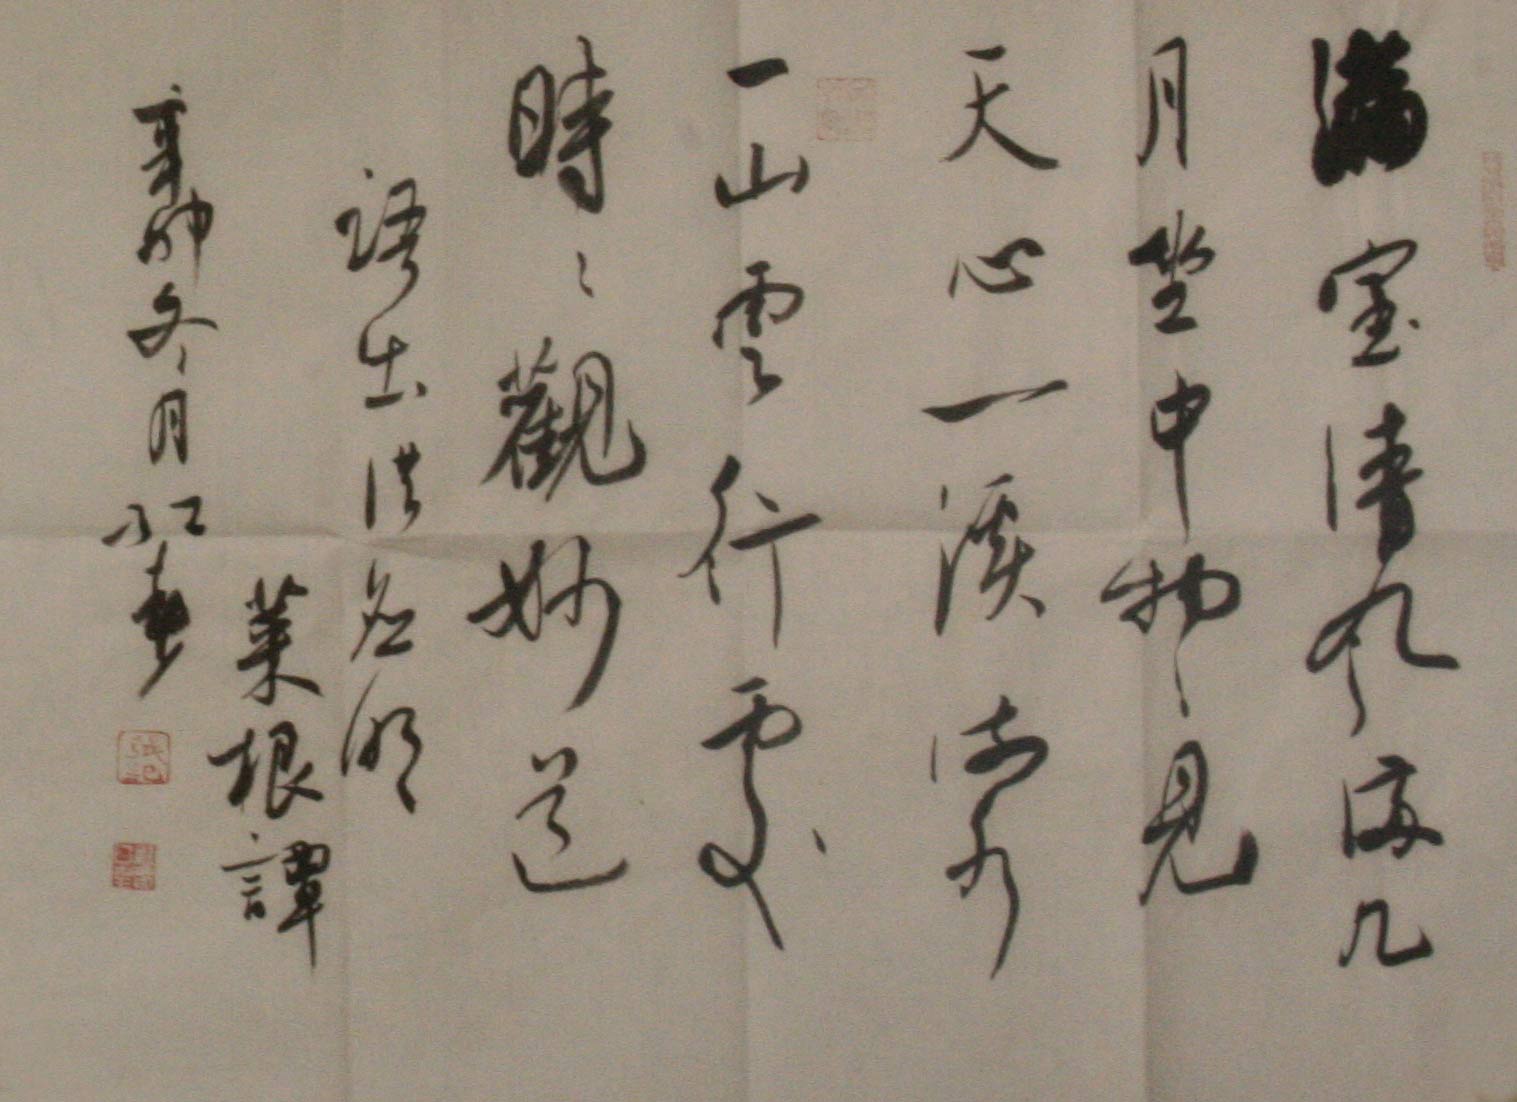 滿室清风滿几
月坐中物物見
天心一溪流水
一山雲行處
時時觀妙道
語出洪应明
菜根譚
冬月